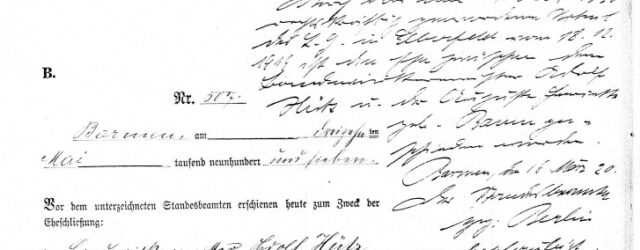 rechtskräftig gewordenen Urteil
des L. G. in Elberfeld vom 18. 12.
1919 ist die Ehe zwischen dem
Adolf
Hütz u. der Auguste Henriette
geb. ge-
schieden worden.
Barmen, den 16 März 20.
Der Standesbeamte
gez: Berlin
B.
Nr.
Barmen, am dreizehnten
Mai tausend neunhundert und sieben.
Vor dem unterzeichneten Standesbeamten erschienen heute zum Zweck der
Eheschließung:
Adolf Hütz